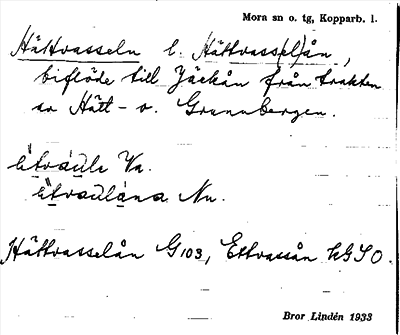 Mora sn o. tg, Kopparb. l.
Hättvasseln l. Hättvass(el)ån,
biflöde till Jäckån från trakten
av Hätt- o. Grunnbergen.
Va.
Nu.
Hättvasselån G 103, Ettvassån KGSO.
Bror Lindén 1933